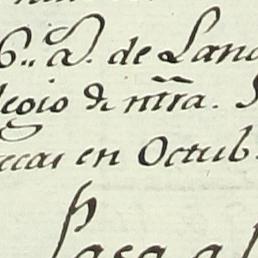 6.. a. de Lanc
legio de ntra.
ecas en Octub
Pasa a